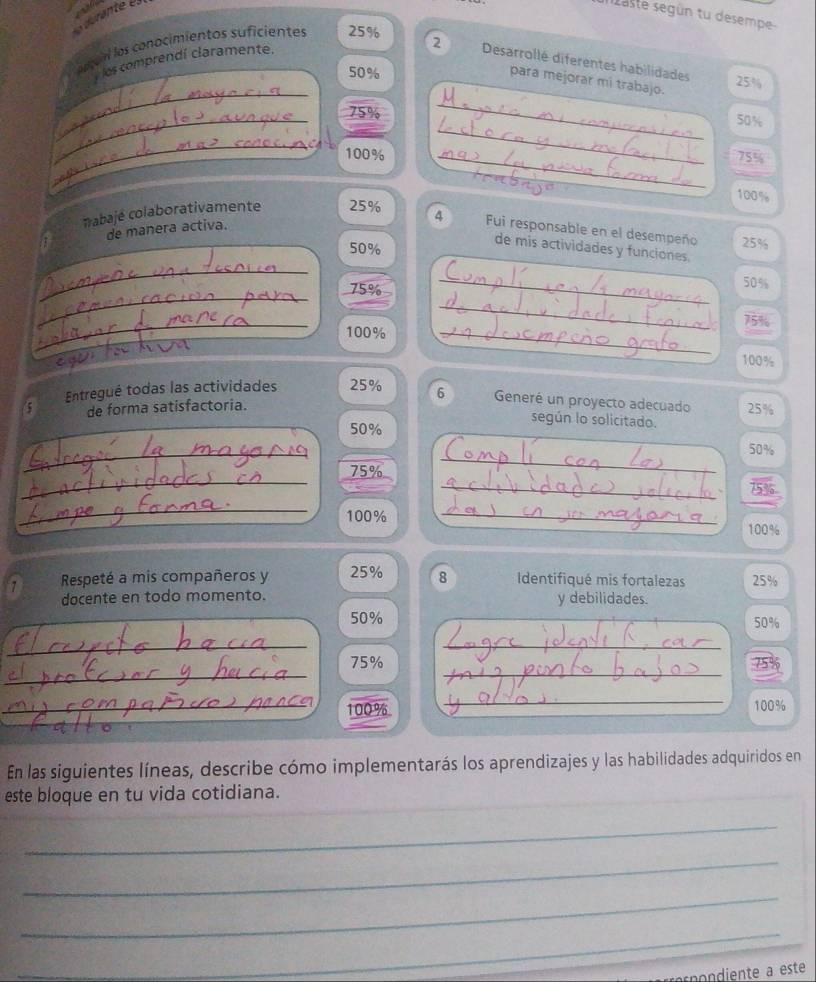 durante
según tu desempe-
los conocimientos suficientes
los comprendí claramente.
25%
50%
75%
100%
la mayoria
los conceptos aunque
de mas
2 Desarrollé diferentes habilidades
para mejorar mi trabajo.
25%
50%
75%
100%
Mejore mi comprensión
Lectora y
mas la nueva forma de
trabajo
Trabajé colaborativamente
de manera activa.
25%
50%
75%
100%
una tecnica
para
trabajar de manera
equitativa
4 Fui responsable en el desempeño
de mis actividades y funciones.
25%
50%
75%
100%
Cumplí con la mayoria
de actividades
un desempeño grato
5 Entregué todas las actividades
de forma satisfactoria.
25%
50%
75%
100%
Entregué la mayoria
de actividades en
tiempo y forma.
6 Generé un proyecto adecuado
según lo solicitado.
25%
50%
75%
100%
Complí con las
actividades solicita
das en su mayoria
7 Respeté a mis compañeros y
docente en todo momento.
25%
50%
75%
100%
El respeto hacia
el profesor y hacia
mis compañeros nonca
falto.
8 Identifiqué mis fortalezas
y debilidades.
25%
50%
75%
100%
Logre identificar
mis ponto bajos
y altos.
En las siguientes líneas, describe cómo implementarás los aprendizajes y las habilidades adquiridos en
este bloque en tu vida cotidiana.
a este